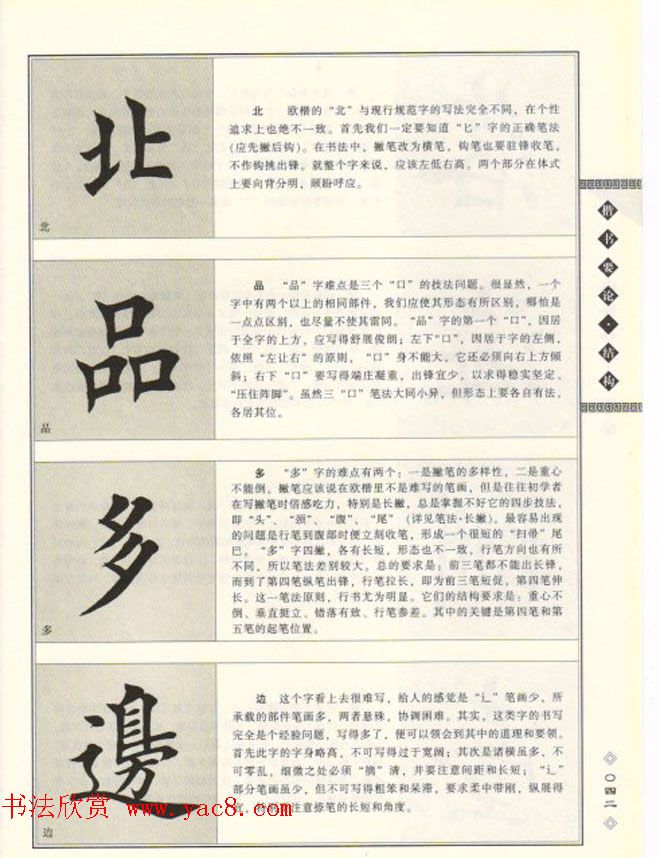 北
北
北 欧楷的“北”与现行规范字的写法完全不同，在个性
追求上也绝不一致。首先我们一定要知道“匕”字的正确笔法
(应先撇后钩)。在书法中，撇笔改为横笔，钩笔也要驻锋收笔，
不作钩挑出锋。就整个字来说，应该左低右高。两个部分在体式
上要向背分明，顾盼呼应。
品
品
品 “品”字难点是三个“口”的技法问题。很显然，一个
字中有两个以上的相同部件，我们应使其形态有所区别，哪怕是
一点点区别，也尽量不使其雷同。“品”字的第一个“口”，因居
于全字的上方，应写得舒展俊朗；左下“口”，因居于字的左侧，
依照“左让右”的原则，“口”身不能大，它还必须向右上方倾
斜；右下“口”要写得端庄凝重，出锋宜少，以求得稳实坚定、
“压住阵脚”。虽然三“口”笔法大同小异，但形态上要各自有法，
各居其位。
多
多
多 “多”字的难点有两个：一是撇笔的多样性，二是重心
不能倒。撇笔应该说在欧楷里不是难写的笔画，但是往往初学者
在写撇笔时倍感吃力，特别是长撇，总是掌握不好它的四步技法，
即“头”、“颈”、“腹”、“尾”（详见笔法·长撇）。最容易出现
的问题是行笔到腹部时便立刻收笔，形成一个很短的“扫帚”尾
巴。“多”字四撇，各有长短，形态也不一致，行笔方向也有所
不同，所以笔法差别较大。总的要求是：前三笔都不能出长锋，
而到了第四笔纵笔出锋，行笔拉长，即为前三笔短促，第四笔伸
长。这一笔法原则，行书尤为明显。它们的结构要求是：重心不
倒、垂直挺立、错落有致、行笔参差。其中的关键是第四笔和第
五笔的起笔位置。
邊
边
边 这个字看上去很难写，给人的感觉是“辶”笔画少，所
承载的部件笔画多，两者悬殊，协调困难。其实，这类字的书写
完全是个经验问题，写得多了，便可以领会到其中的道理和要领。
首先此字的字身略高，不可写得过于宽阔；其次是诸横虽多，不
可零乱，细微之处必须“摘”清，并要注意间距和长短；“辶”
部分笔画虽少，但不可写得粗笨和呆滞，要求柔中带刚，纵展得
宜，特别要注意捺笔的长短和角度。
楷书要论·结构
〇四二
书法欣赏 www.yac8.com